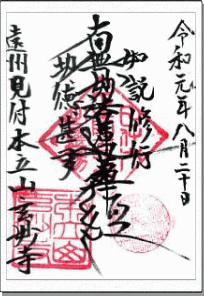 令和元年八月二十日
如説修行
南無妙法蓮華経
功徳甚多
遠州見付本立山玄妙寺